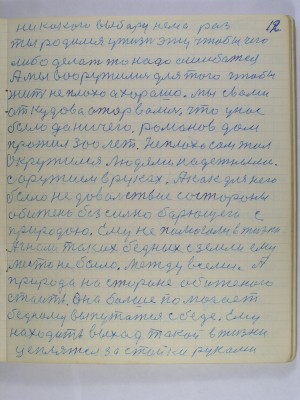 12
никакого выбару нема раз
ты родился у жизн эту чтобы чего
либо делать то надо ошибатся
А мы вооружились для того чтобы
жит неплохо а хорошо. мы с вами
откудова оторвались, что у нас
было да ничего. романов дом
прожил 300 лет. Неплохо сам жил
окружился людями надежными.
с оружием в руках. А как для него
было не доволствие со стороны
обижено безсилно
природою. Ему не помогали в
Ягнам таких бедных с земли ему
жить не было. между всеми. А
природа на стороне обиженого
стаить. Она болше помагает
бедному выпутатся с беде. Ему
находить выход такой в жизни
цеплятся за стойки руками